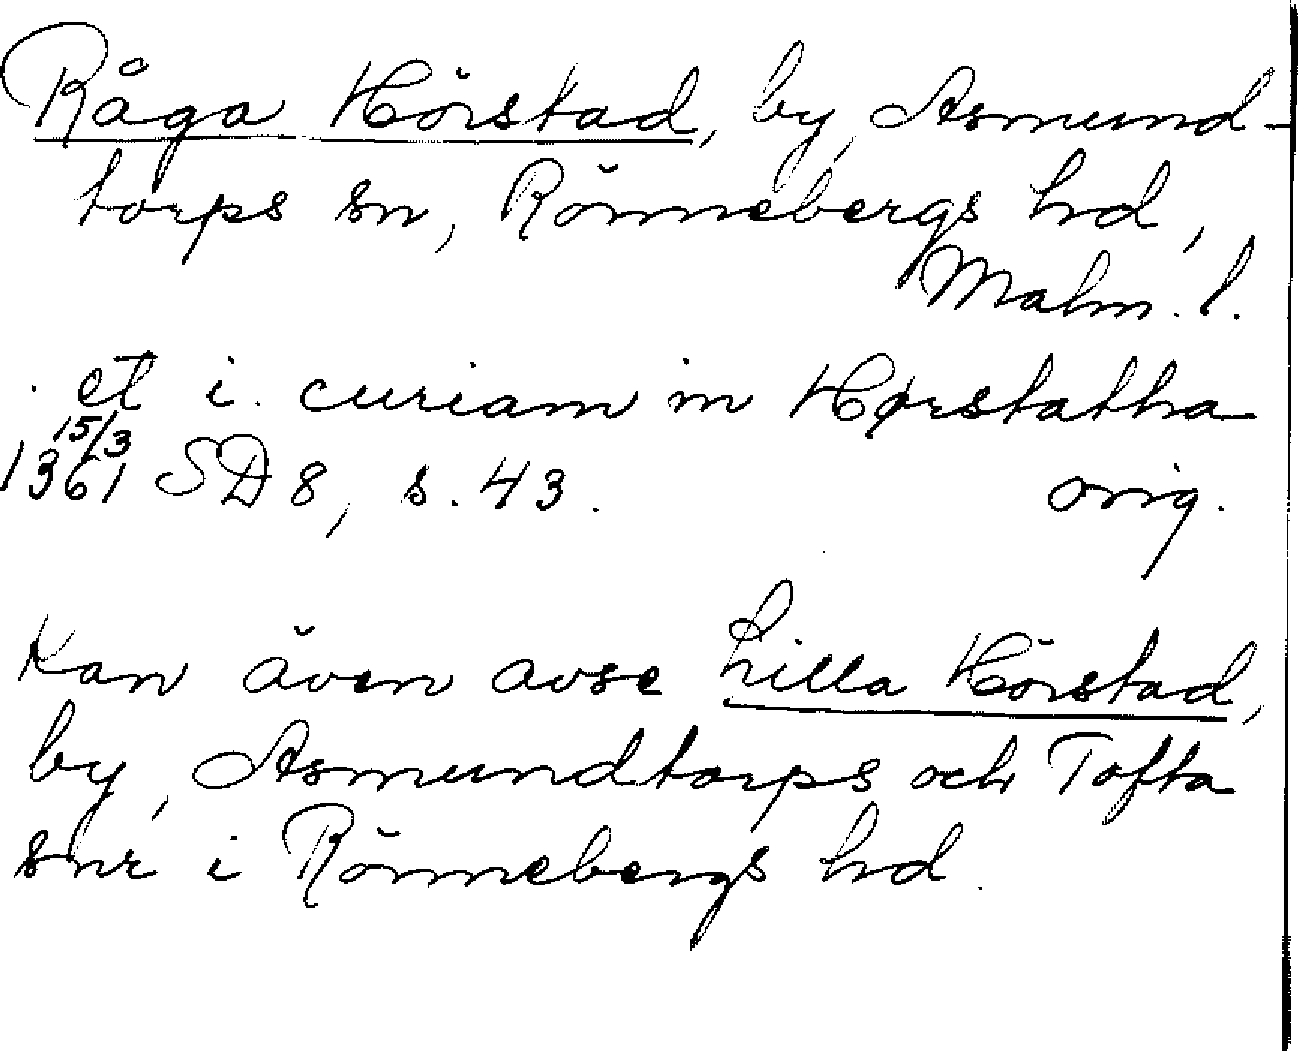 Råga Hörstad, by, Asmund-
torps sn, Rönnebergs hd,
Malm. l.
et i. curiam in Hørstatha
15/3
1361 SD 8, s. 43. orig.
Kan även avse Lilla Hörstad,
by, Asmundtorps och Tofta
snr i Rönnebergs hd.